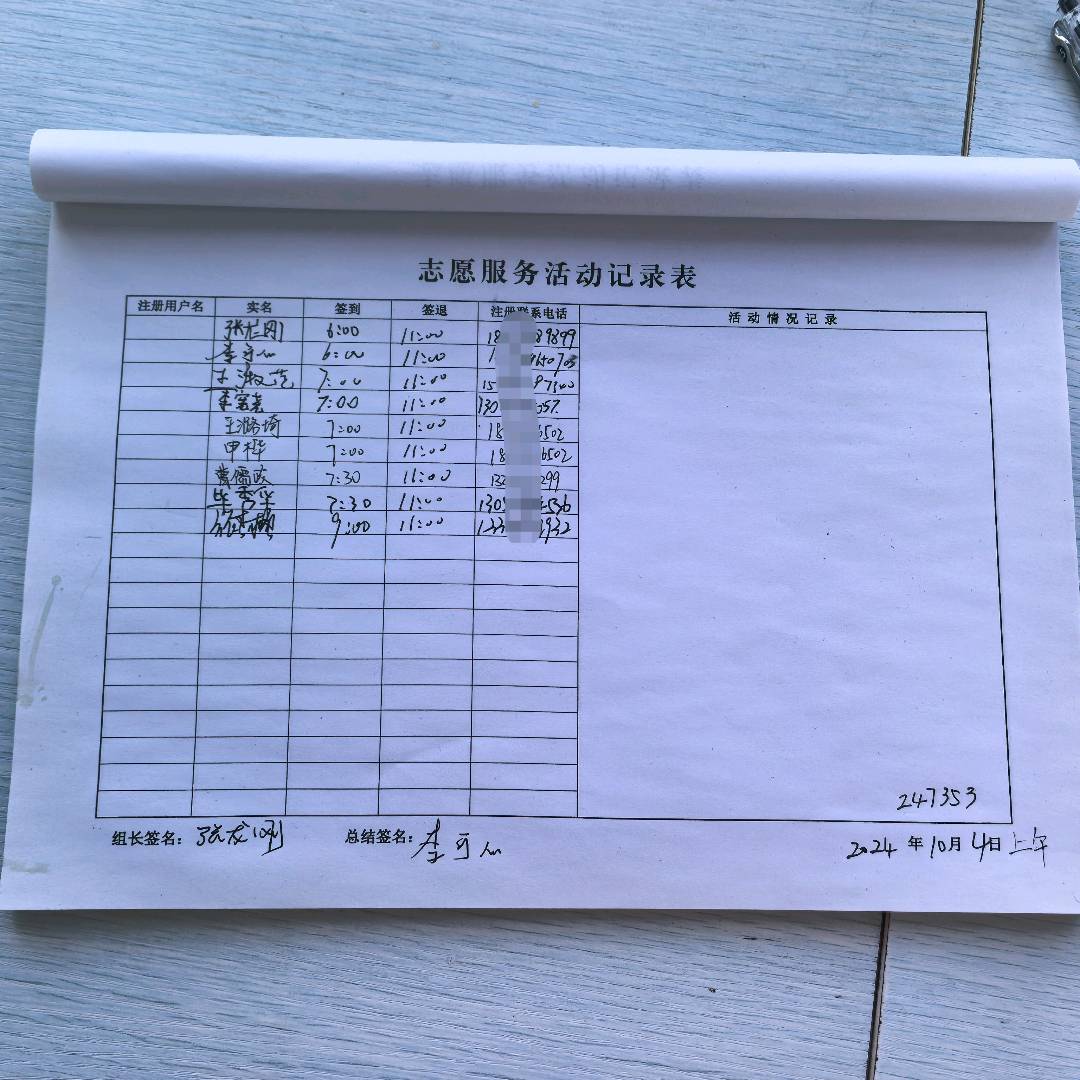 志愿服务活动记录表
注册用户名 实名 签到 签退 注册联系电话 活动情况记录
张龙刚 6:00 11:00 18 89899
6:00 11:00 1 650703
王淑范 7:00 11:00 15 97500
7:00 11:00 130 057
王潞琦 7:00 11:00 18 6502
甲桦 7:00 11:00 18 6502
7:30 11:00 132 299
毕秀华 7:30 11:00 130 4536
9:00 11:00 133 1932
247353
组长签名: 张龙刚 总结签名: 2024 年 10 月 4 日 上午